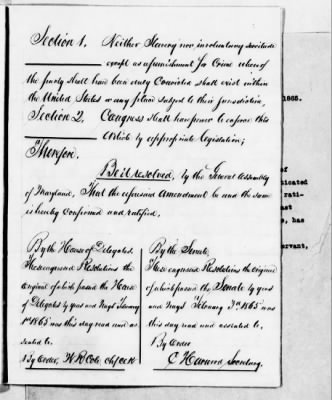 Section 1. Neither Slavery nor involuntary servitude
except as a punishment for Crime whereof
the party shall have been duly Convicted shall exist within
the United States or any place subject to their jurisdiction,
Section 2. Congress shall have power to enforce this
Article by appropriate legislation;
Therefore.
Be it resolved, by the General Assembly
of Maryland, That the aforesaid Amendment be and the same
is hereby confirmed and ratified,
By the House of Delegates.
These engrossed Resolutions the
original of which passed the House
of Delegates by yeas and nays February
1st 1865 was this day read and as
sented to.
By Order, W R Cole, Chf Clk
By the Senate,
These engrossed Resolutions the original
of which passed the Senate by yeas
and nays February 3rd 1865 was
this day read and assented to,
By Order
C Harwood Secretary.
1865.
of
dicated
rati-
ast
, has
ervant,